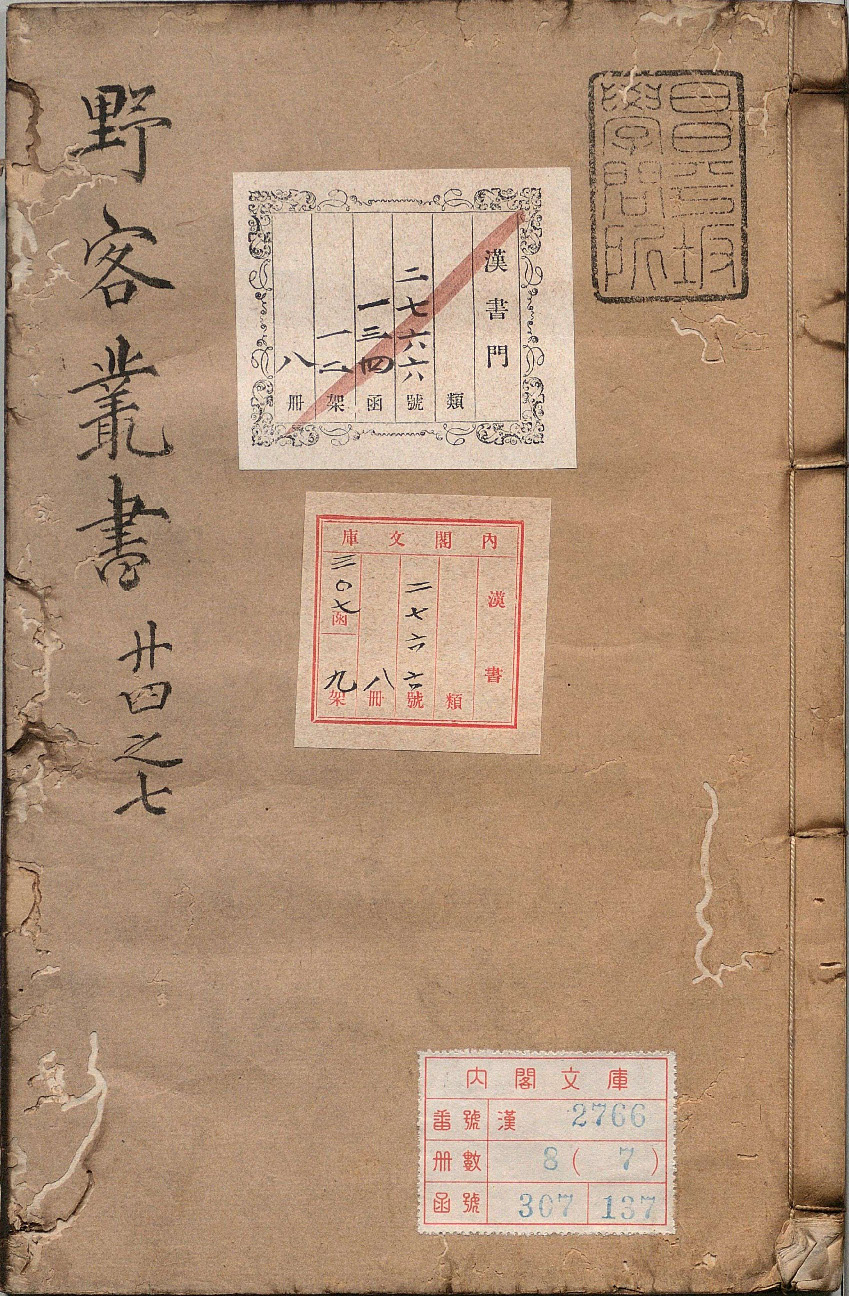 野客叢書 廿四之七
昌平坂
學問所
漢書門
類
二七六六號
一三四函
一二架
八冊
內閣文庫
漢書
類
二七六六號
八冊
三〇七函
九架
內閣文庫
番號 漢 2766
冊數 8(7)
函號 307 137